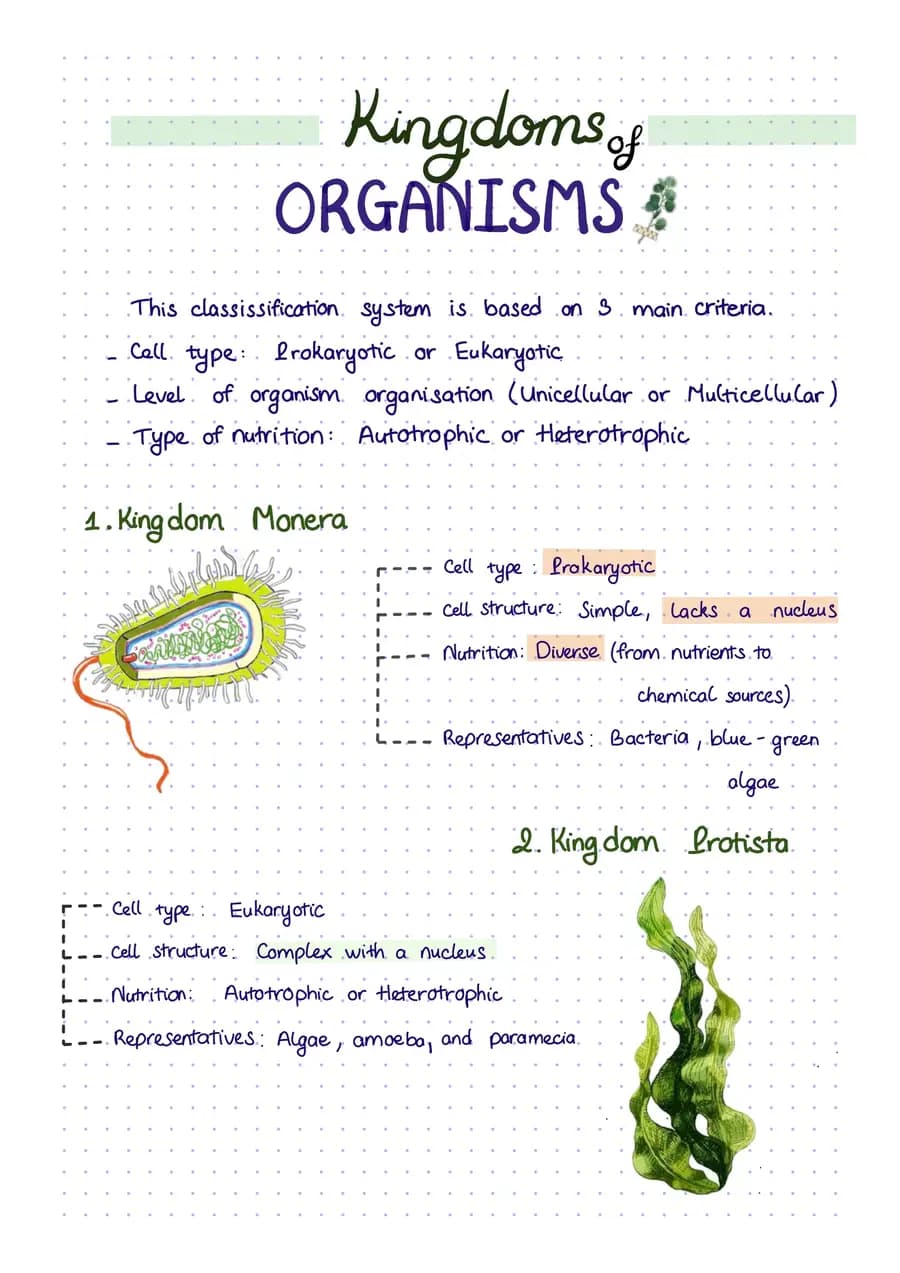 Kingdoms of
ORGANISMS
This classissification system is based on 3 main criteria.
- Cell type: Prokaryotic or Eukaryotic
- Level of organism organisation (Unicellular or Multicellular)
- Type of nutrition: Autotrophic or Heterotrophic
1. Kingdom Monera
Cell type: Prokaryotic
Cell structure: Simple, lacks a nucleus
Nutrition: Diverse (from nutrients to
chemical sources)
Representatives: Bacteria, blue-green
algae
2. Kingdom Protista
Cell type: Eukaryotic
Cell structure: Complex with a nucleus
Nutrition: Autotrophic or Heterotrophic
Representatives: Algae, amoeba, and paramecia